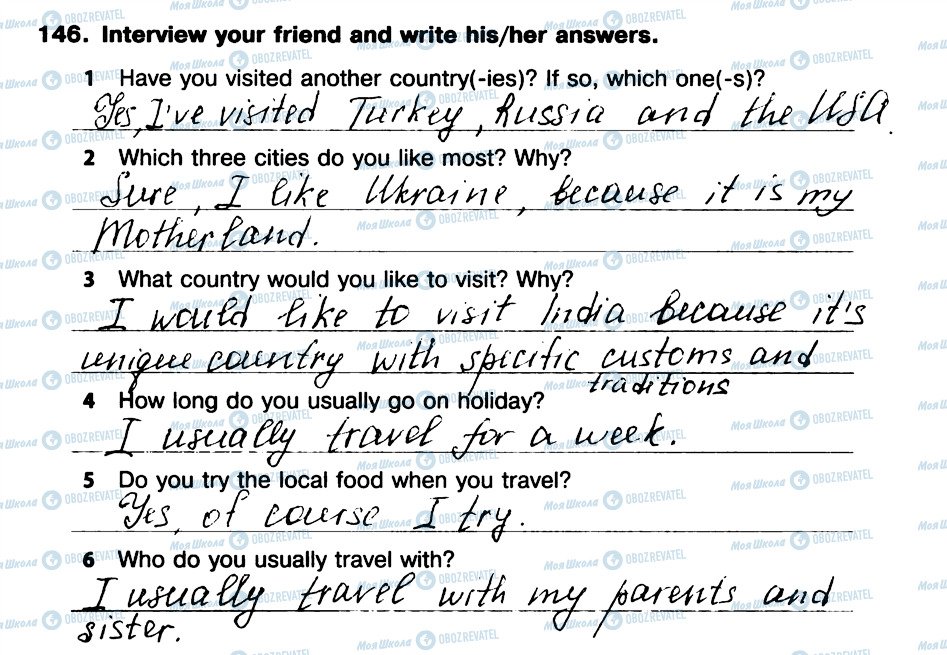 146. Interview your friend and write his/her answers.
1 Have you visited another country(-ies)? If so, which one(-s)?
Yes, I've visited Turkey, Russia and the USA.
2 Which three cities do you like most? Why?
Sure, I like Ukraine, because it is my
Motherland.
3 What country would you like to visit? Why?
I would like to visit India because it's
unique country with specific customs and
traditions
4 How long do you usually go on holiday?
I usually travel for a week.
5 Do you try the local food when you travel?
Yes, of course I try.
6 Who do you usually travel with?
I usually travel with my parents and
sister.
МояШкола OBOZREVATEL